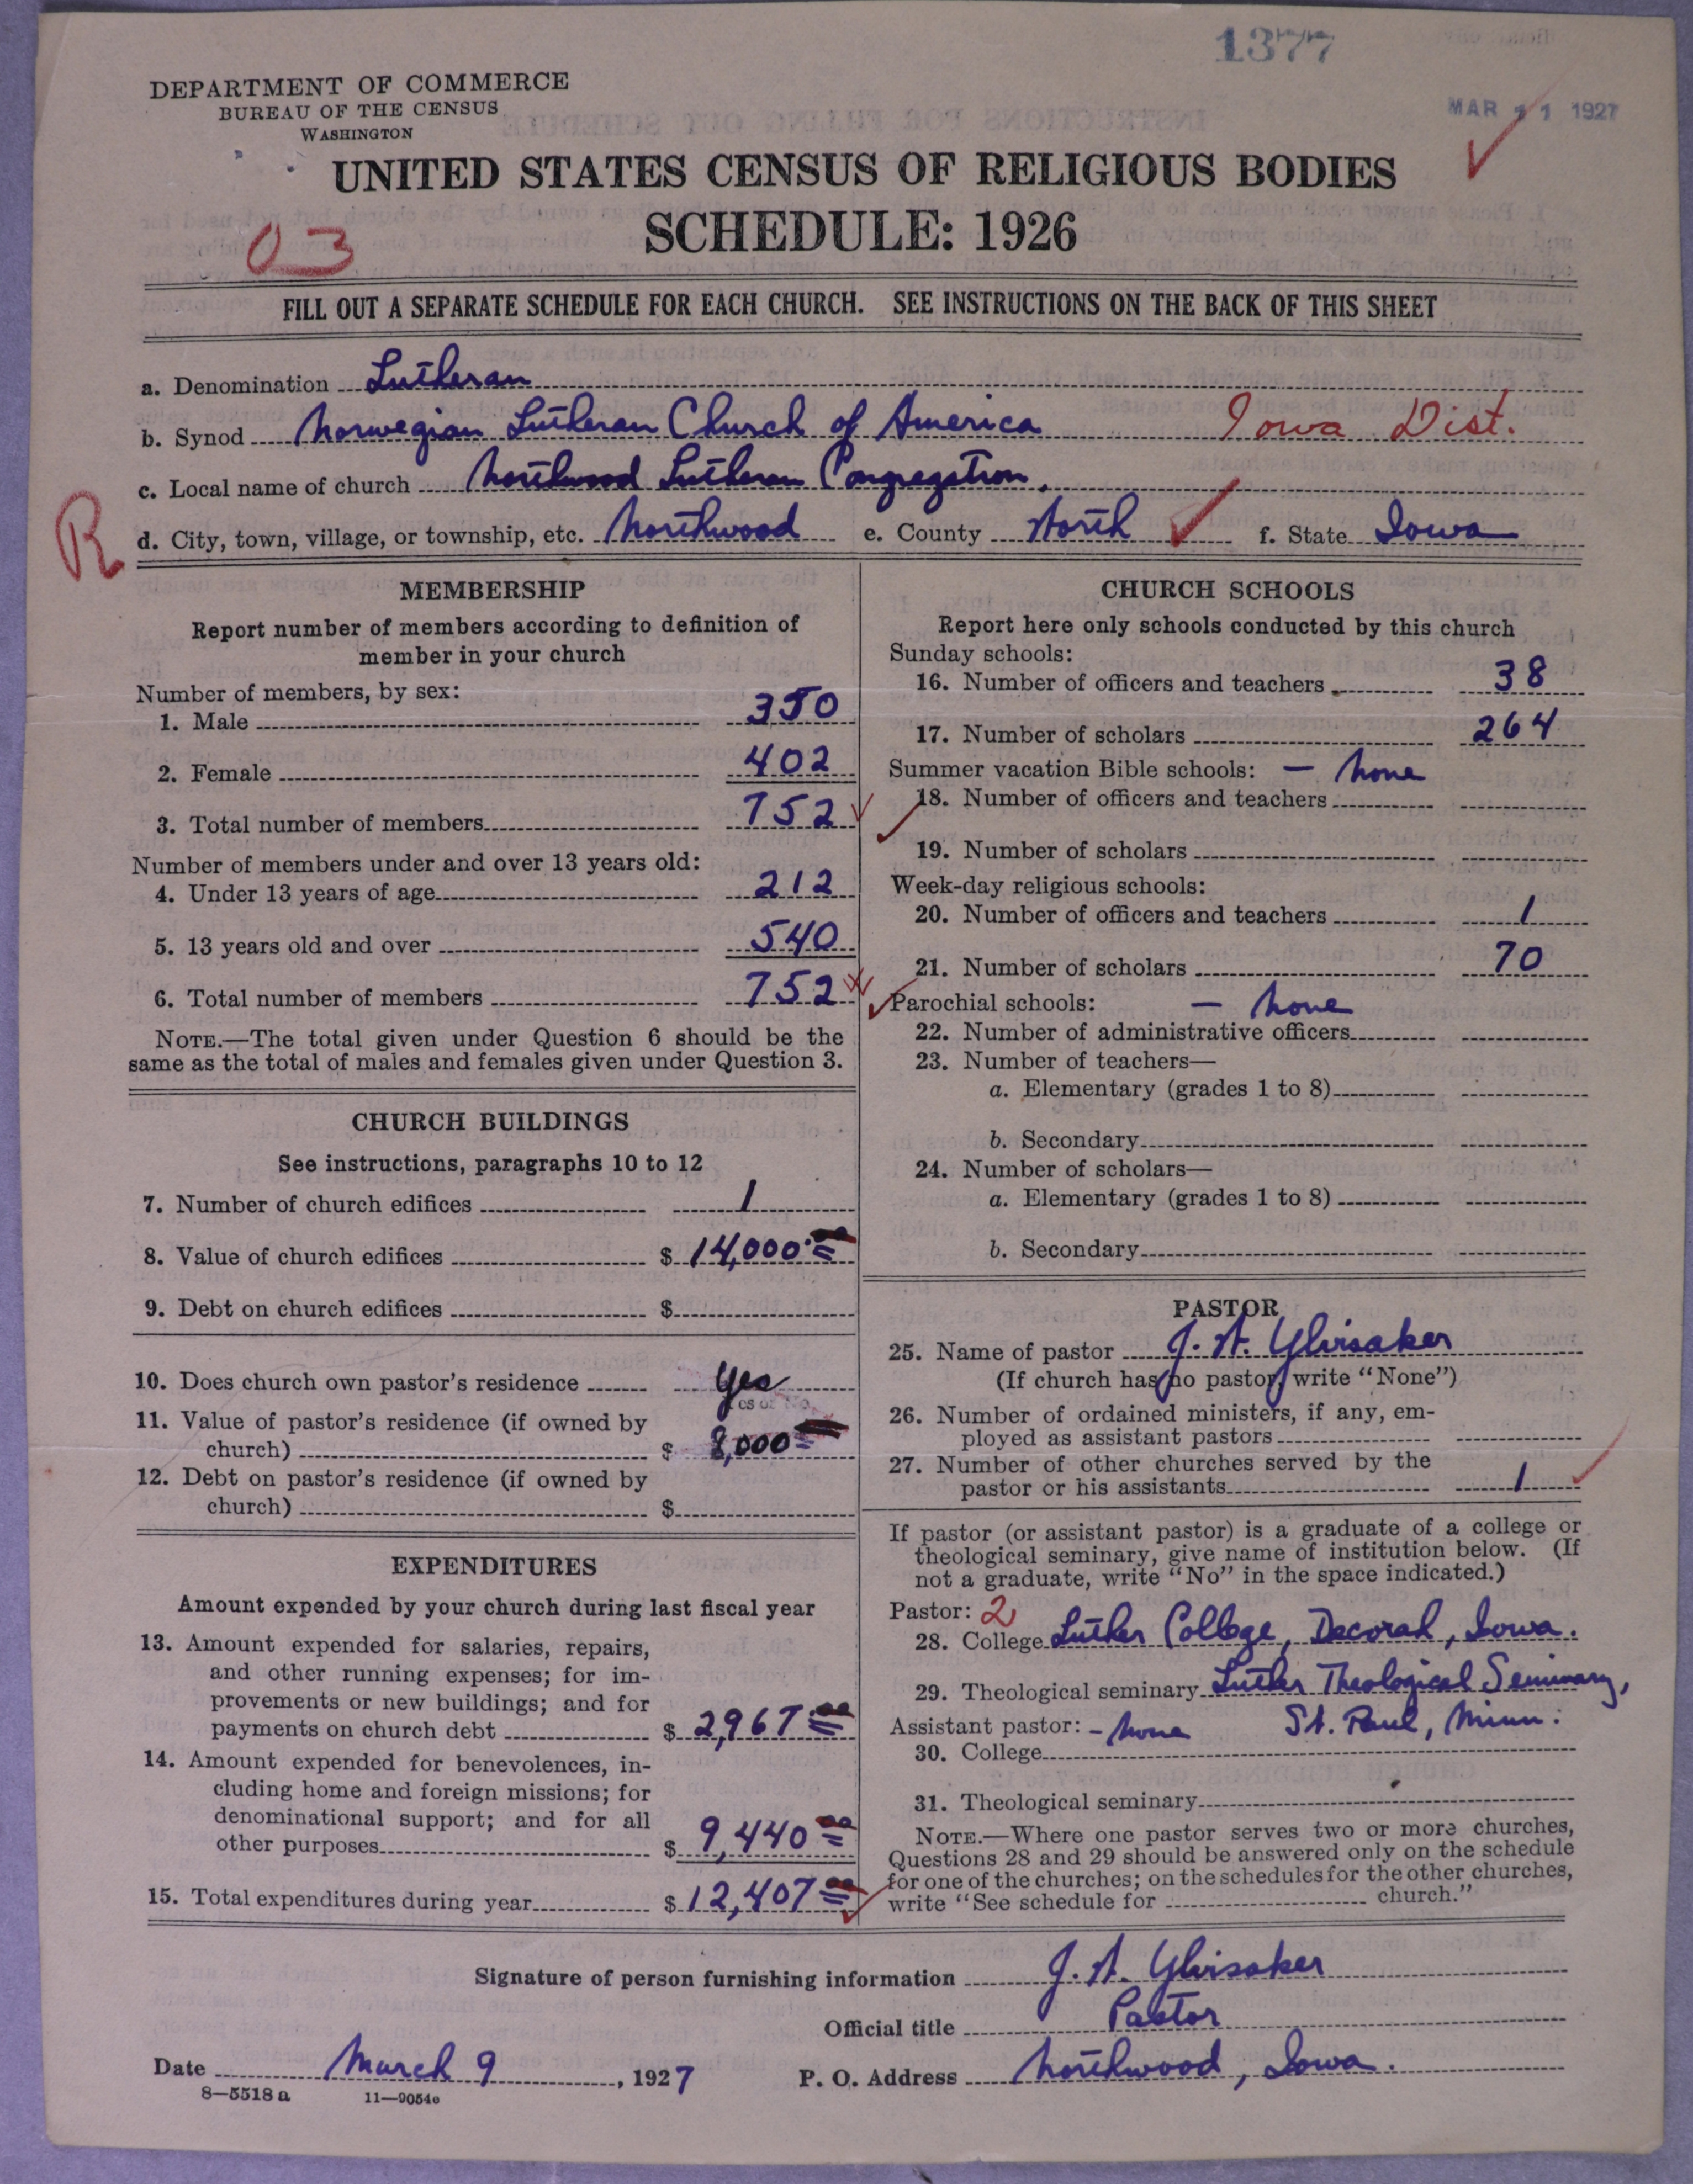 1377
MAR 11 1927
DEPARTMENT OF COMMERCE
BUREAU OF THE CENSUS
WASHINGTON
UNITED STATES CENSUS OF RELIGIOUS BODIES
SCHEDULE: 1926
03
FILL OUT A SEPARATE SCHEDULE FOR EACH CHURCH. SEE INSTRUCTIONS ON THE BACK OF THIS SHEET
a. Denomination Lutheran
b. Synod Norwegian Lutheran Church of America Iowa Dist.
c. Local name of church Northwood Lutheran Congregation.
R
d. City, town, village, or township, etc. Northwood e. County Worth f. State Iowa
MEMBERSHIP
Report number of members according to definition of
member in your church
Number of members, by sex:
1. Male 350
2. Female 402
3. Total number of members 752
Number of members under and over 13 years old:
4. Under 13 years of age 212
5. 13 years old and over 540
6. Total number of members 752
NOTE.—The total given under Question 6 should be the
same as the total of males and females given under Question 3.
CHURCH BUILDINGS
See instructions, paragraphs 10 to 12
7. Number of church edifices 1
8. Value of church edifices $ 14,000
9. Debt on church edifices $
10. Does church own pastor's residence Yes
11. Value of pastor's residence (if owned by
church) $ 8,000
12. Debt on pastor's residence (if owned by
church) $
EXPENDITURES
Amount expended by your church during last fiscal year
13. Amount expended for salaries, repairs,
and other running expenses; for im-
provements or new buildings; and for
payments on church debt $ 2,967
14. Amount expended for benevolences, in-
cluding home and foreign missions; for
denominational support; and for all
other purposes $ 9,440
15. Total expenditures during year $ 12,407
CHURCH SCHOOLS
Report here only schools conducted by this church
Sunday schools:
16. Number of officers and teachers 38
17. Number of scholars 264
Summer vacation Bible schools: — none
18. Number of officers and teachers
19. Number of scholars
Week-day religious schools:
20. Number of officers and teachers 1
21. Number of scholars 70
Parochial schools: — none
22. Number of administrative officers
23. Number of teachers—
a. Elementary (grades 1 to 8)
b. Secondary
24. Number of scholars—
a. Elementary (grades 1 to 8)
b. Secondary
PASTOR
25. Name of pastor J. A. Ylvisaker
(If church has no pastor, write "None")
26. Number of ordained ministers, if any, em-
ployed as assistant pastors
27. Number of other churches served by the
pastor or his assistants 1
If pastor (or assistant pastor) is a graduate of a college or
theological seminary, give name of institution below. (If
not a graduate, write "No" in the space indicated.)
Pastor: 2
28. College Luther College, Decorah, Iowa.
29. Theological seminary Luther Theological Seminary,
Assistant pastor: – none St. Paul, Minn.
30. College
31. Theological seminary
NOTE.—Where one pastor serves two or more churches,
Questions 28 and 29 should be answered only on the schedule
for one of the churches; on the schedules for the other churches,
write "See schedule for church."
Signature of person furnishing information J. A. Ylvisaker
Official title Pastor
Date March 9, 1927 P. O. Address Northwood, Iowa.
8—5518 a 11—9054e